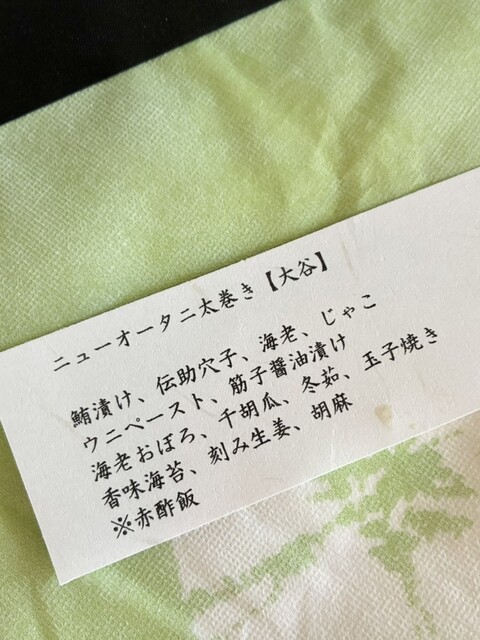 ニューオータニ太巻き【大谷】
鮪漬け、伝助穴子、海老、じゃこ
ウニペースト、筋子醤油漬け
海老おぼろ、干胡瓜、冬茹、玉子焼き
香味海苔、刻み生姜、胡麻
※赤酢飯